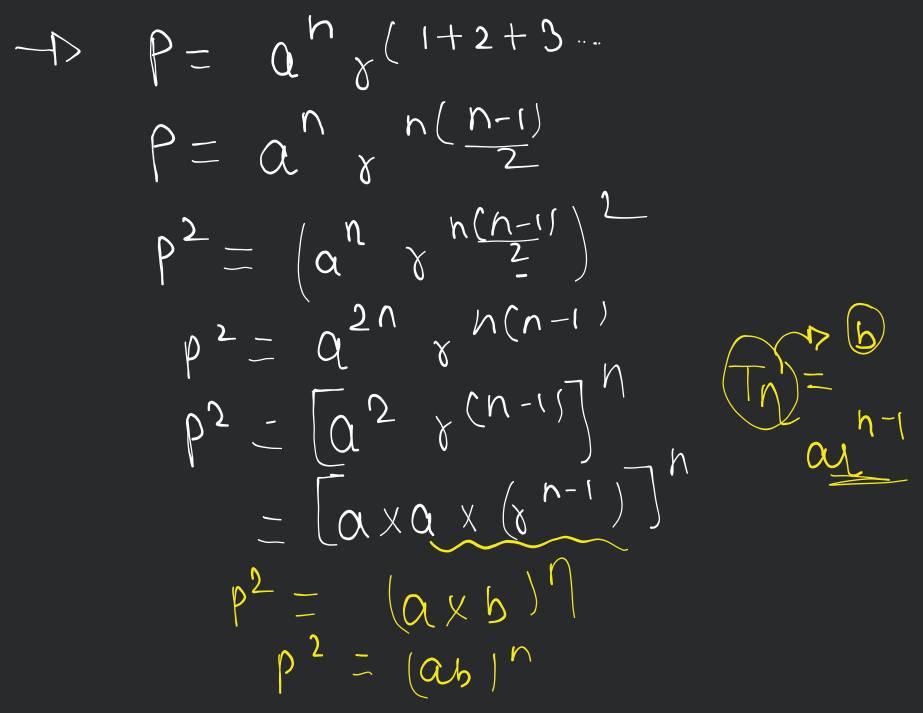 → P = aⁿ r^(1+2+3...
P = aⁿ r^n(n-1)/2
p² = (aⁿ r^n(n-1)/2)²
p² = a²ⁿ r^n(n-1)
p² = [a² r^(n-1)]ⁿ
= [a×a×(r^n-1)]ⁿ
p² = (a×b)ⁿ
p² = (ab)ⁿ
Tn → b
=
ar^n-1